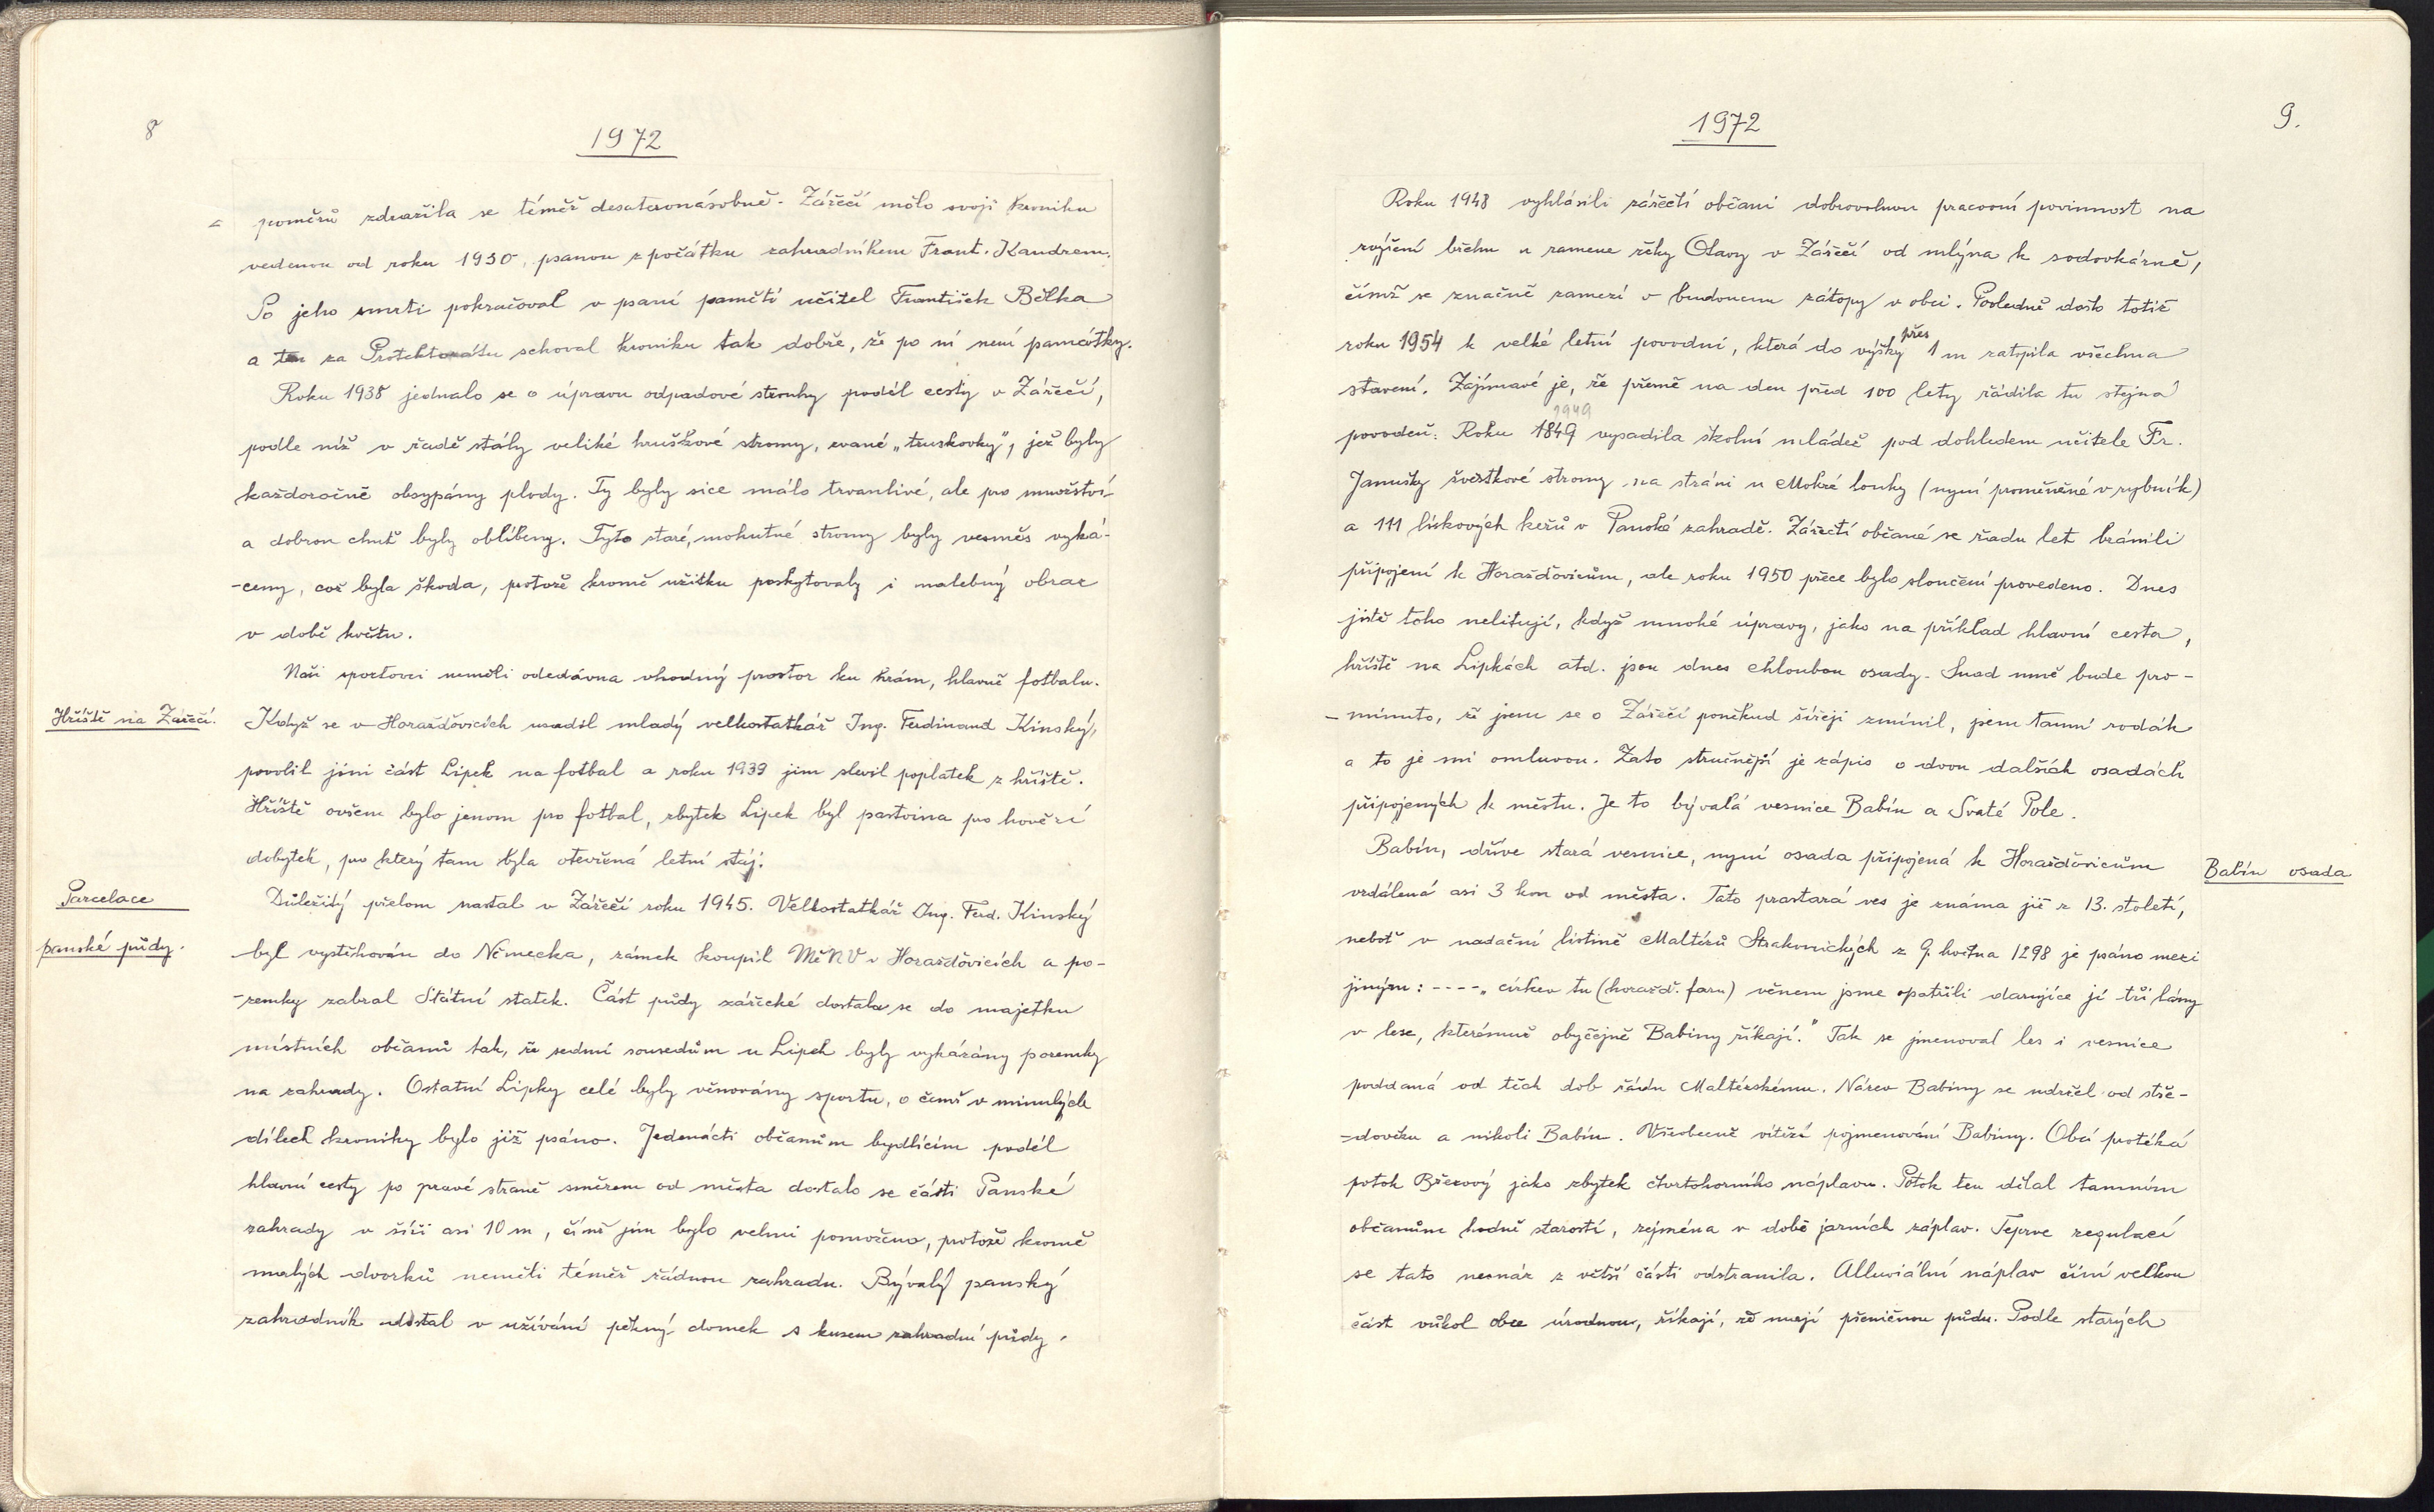 8
1972
poměrů zdražila se téměř desateronásobně. Zářečí mělo svoji kroniku
vedenou od roku 1930, psanou z počátku zahradníkem Frant. Kandrem.
Po jeho smrti pokračoval v psaní pamětí učitel František Bělka
a ten za Protektorátu schoval kroniku tak dobře, že po ní není památky.
Roku 1938 jednalo se o úpravu odpadové strouhy podél cesty v Zářečí,
podle níž v řadě stály veliké hruškové stromy, zvané „truskovky", jež byly
každoročně obsypány plody. Ty byly sice málo trvanlivé, ale pro množství
a dobrou chuť byly oblíbeny. Tyto staré, mohutné stromy byly vesměs vyká-
-ceny, což byla škoda, protože kromě užitku poskytovaly i malebný obraz
v době květu.
Naši sportovci neměli odedávna vhodný prostor ku hrám, hlavně fotbalu.
Hřiště na Zářečí.
Když se v Horažďovicích usadil mladý velkostatkář Ing. Ferdinand Kinský,
povolil jim část Lipek na fotbal a roku 1939 jim slevil poplatek z hřiště.
Hřiště ovšem bylo jenom pro fotbal, zbytek Lipek byl pastvina pro hovězí
dobytek, pro který tam byla otevřená letní stáj.
Parcelace
panské půdy.
Důležitý přelom nastal v Zářečí roku 1945. Velkostatkář Ing. Ferd. Kinský
byl vystěhován do Německa, zámek koupil MěNV v Horažďovicích a po-
-zemky zabral Státní statek. Část půdy zářecké dostala se do majetku
místních občanů tak, že sedmi sousedům u Lipek byly vykázány pozemky
na zahrady. Ostatní Lipky celé byly věnovány sportu, o čemž v minulých
dílech kroniky bylo již psáno. Jedenácti občanům bydlícím podél
hlavní cesty po pravé straně směrem od města dostalo se části Panské
zahrady v šíři asi 10 m, čímž jim bylo velmi pomoženo, protože kromě
malých dvorků neměli téměř žádnou zahradu. Bývalý panský
zahradník dostal v užívání pěkný domek s kusem zahradní půdy.
1972
9.
Roku 1948 vyhlásili zářečtí občani dobrovolnou pracovní povinnost na
zvýšení břehu u ramene řeky Otavy v Zářečí od mlýna k sodovkárně,
čímž se značně zamezí v budoucnu zátopy v obci. Posledně došlo totiž
roku 1954 k velké letní povodni, která do výšky přes 1 m zatopila všechna
stavení. Zajímavé je, že přesně na den před 100 lety řádila tu stejná
povodeň. Roku 1849 vysadila školní mládež pod dohledem učitele Fr.
1949
Janušky švestkové stromy na stráni u Mokré louky (nyní proměněné v rybník)
a 111 lískových keřů v Panské zahradě. Zářečtí občané se řadu let bránili
připojení k Horažďovicům, ale roku 1950 přece bylo sloučení provedeno. Dnes
jistě toho nelitují, když mnohé úpravy, jako na příklad hlavní cesta,
hřiště na Lipkách atd. jsou dnes chloubou osady. Snad mně bude pro-
-minuto, že jsem se o Zářečí poněkud šířeji zmínil, jsem tamní rodák
a to je mi omluvou. Zato stručnější je zápis o dvou dalších osadách
připojených k městu. Je to bývalá vesnice Babín a Svaté Pole.
Babín, dříve stará vesnice, nyní osada připojená k Horažďovicům
Babín osada
vzdálená asi 3 km od města. Tato prastará ves je známa již z 13. století,
neboť v nadační listině Maltézů Strakonických z 9. května 1298 je psáno mezi
jiným: ---- „církev tu (horažď. faru) věnem jsme opatřili darujíce jí tři lány
v lese, kterémuž obyčejně Babiny říkají." Tak se jmenoval les i vesnice
poddaná od těch dob řádu Maltézskému. Název Babiny se udržel od stře-
-dověku a nikoli Babín. Všeobecně vítězí pojmenování Babiny. Obcí protéká
potok Březový jako zbytek čtvrtohorního náplavu. Potok ten dělal tamním
občanům hodně starostí, zejména v době jarních záplav. Teprve regulací
se tato nesnáz z větší části odstranila. Alluviální náplav činí velkou
část vůkol obce úrodnou, říkají, že mají pšeničnou půdu. Podle starých